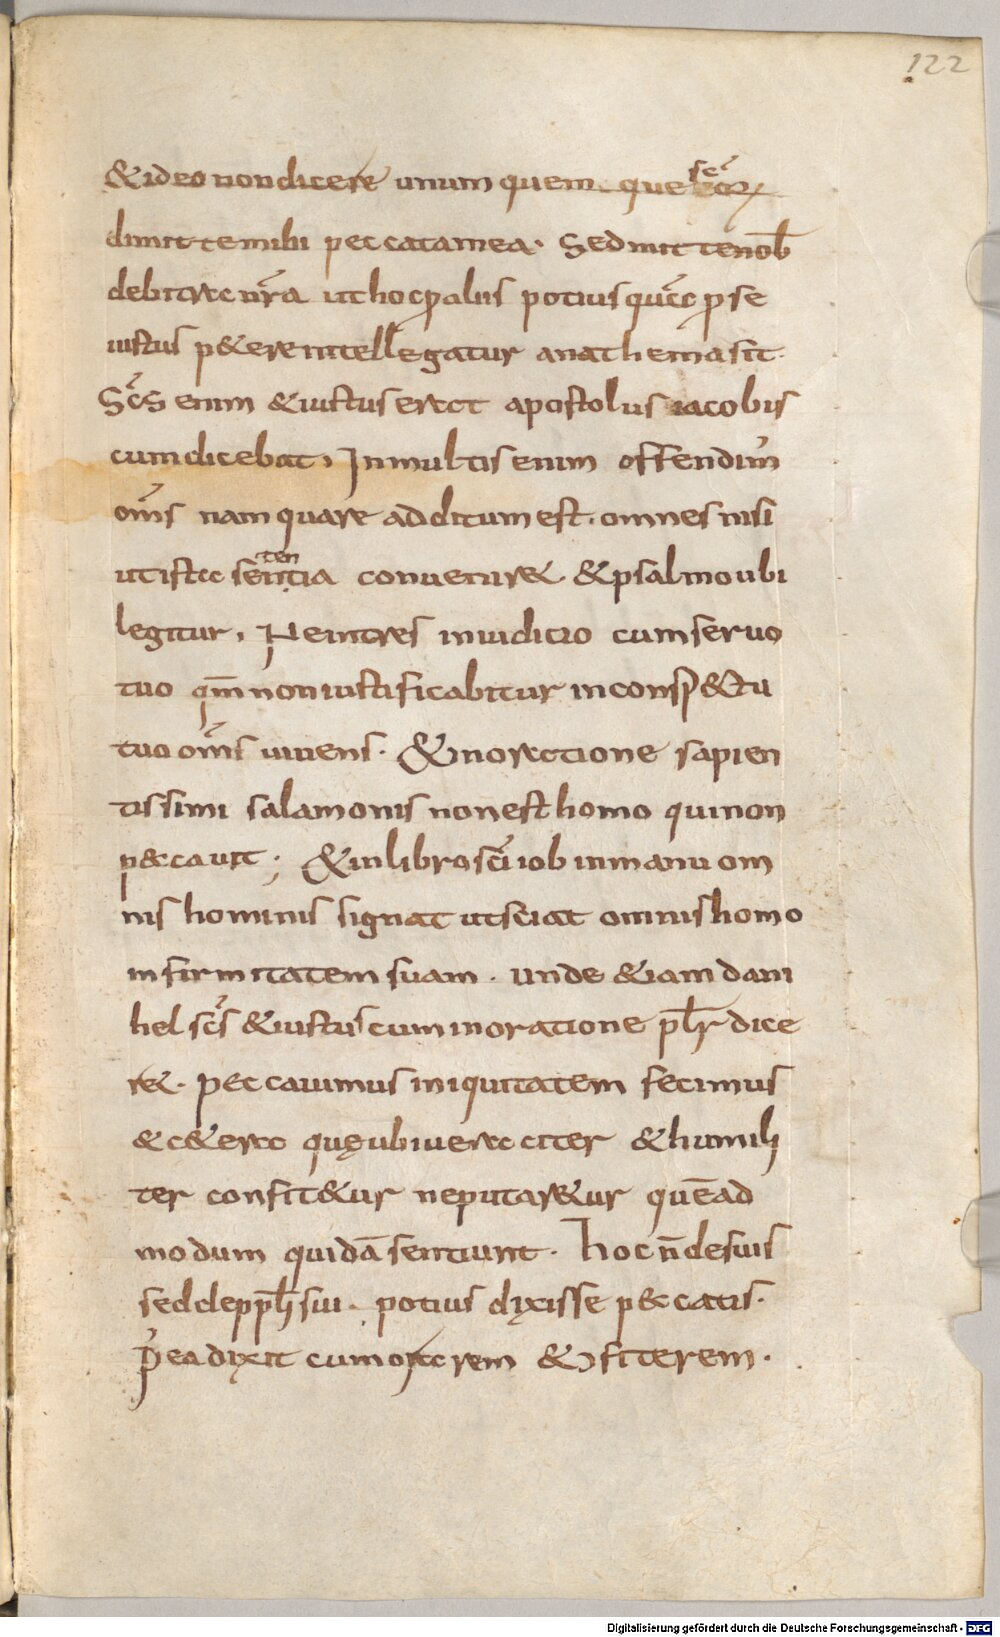 122
& ideo non dicere unum quemque scōrū
dimitte mihi peccata mea. Sed mitte nob̄
debita nr̄a ut hoc p alus potius quā p se
iustus p&ere intellegatur anathema sit.
Scs̄ enim & iustus erat apostolus iacobis
cum dicebat, In multis enim offendim̄
om̄s nam quare additum est. omnes nisi
ut ista sententia conuenir& & psalmo ubi
legitur, Ne intres in iudicio cum seruo
tuo qm̄ non iustificabitur in consp&tu
tuo om̄s uiuens. & in oratione sapien
tissimi salamonis non est homo qui non
p&cauit; & in libro sc̄i iob in manu om
nis hominis signat ut sciat omnis homo
infirmitatem suam. unde &iam dani
hel scs̄ & iustus cum in oratione pl̄r dice
r&. peccauimus iniquitatem fecimus
& c&era quę ubi ueraciter & humili
ter confit&ur ne putar&ur quē ad
modum quidā sentiunt. hoc n̄ de suis
sed de ppl̄i sui. potius dixisse p&catis.
p̄ea dixit cum orarem & ɔfiterem.
Digitalisierung gefördert durch die Deutsche Forschungsgemeinschaft - DFG